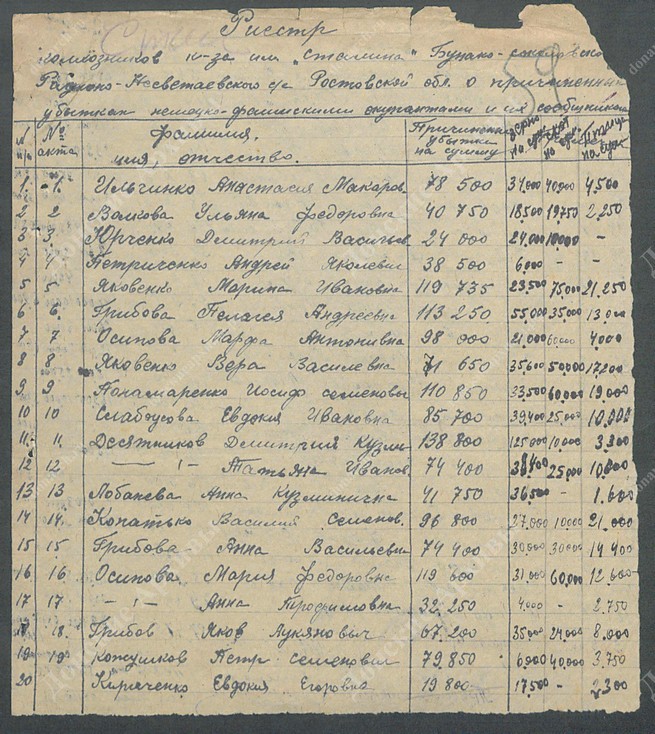 Реестр
колхозников к-за им „Сталина"
Родионо-Несветаевского р/с Ростовской обл. о причиненных
убытках немецко-фашискими окупантами и их сообщниками
№ п/п № акта фамилия, имя, отчество. Причинено убытка на сумму зерно на сум. скот на сум. Птица на сум
1. 1. Ильчинко Анастасия Макаров. 78 500 31,000 40,000 4,500
2 2 Волкова Ульяна федоровна 40 750 18,500 19,750 2,250
3 3. Юрченко Демитрий Васильев 24 000 24,000 10,000 -
4 4 Петриченко Андрей Яколевич 38 500 6,000 - -
5 5 Яковенко Марина Ивановна 119 735 23,500 75,000 21,250
6 6. Грибова Пелагея Андреевна 113 250 55,000 35,000 13,000
7 7 Осипова Марфа Антонивна 98 000 21,000 60,000 4,000
8 8 Яковенко Вера Василевна 71 650 35,600 50,000 17,200
9 9 Понамаренко Иосиф семеновы 110 850 33,500 60,000 19,000
10 10 Слабоусова Евдокия Ивановна 85 700 39,400 25,000 10,000
11. 11. Десятников Демитрия Кузми 138 800 125,000 10,000 3,800
12 12 — " — Татьяна Иванов. 74 400 38,400 25,000 10,000
13 13 Лобанева Анна Кузминична 41 750 36,500 - 1,600
14 14. Копатько Василий семенов. 96 800 27,000 10,000 21,000
15 15 Грибова Анна Васильевн 74 400 30,000 30,000 14 400
16 16. Осипова Мария федоровна 119 600 31,000 60,000 12 600
17 17 — " — Анна Трофиловна 32,250 4,000 - 2,750
18 18. Грибов Яков Лукянович 67,200 35,000 24,000 8,000
19 19 Кожушков Петр семенович 79,850 6,000 40,000 3,750
20 Кириченко Евдокия Егоровна 19 800 17,500 - 2300